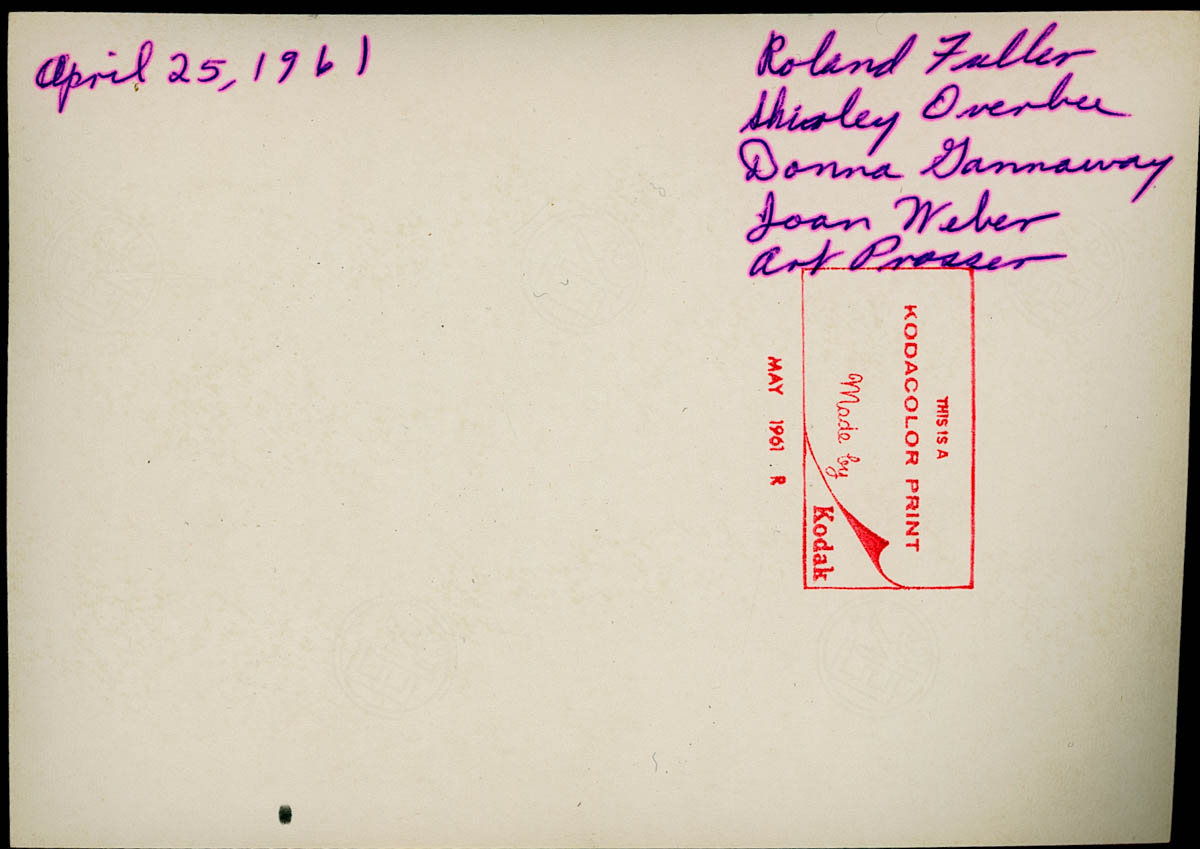 April 25, 1961
Roland Fuller
Shirley Overbee
Donna Gannaway
Joan Weber
Art Prosser
THIS IS A
KODACOLOR PRINT
Made by
Kodak
MAY 1961 R